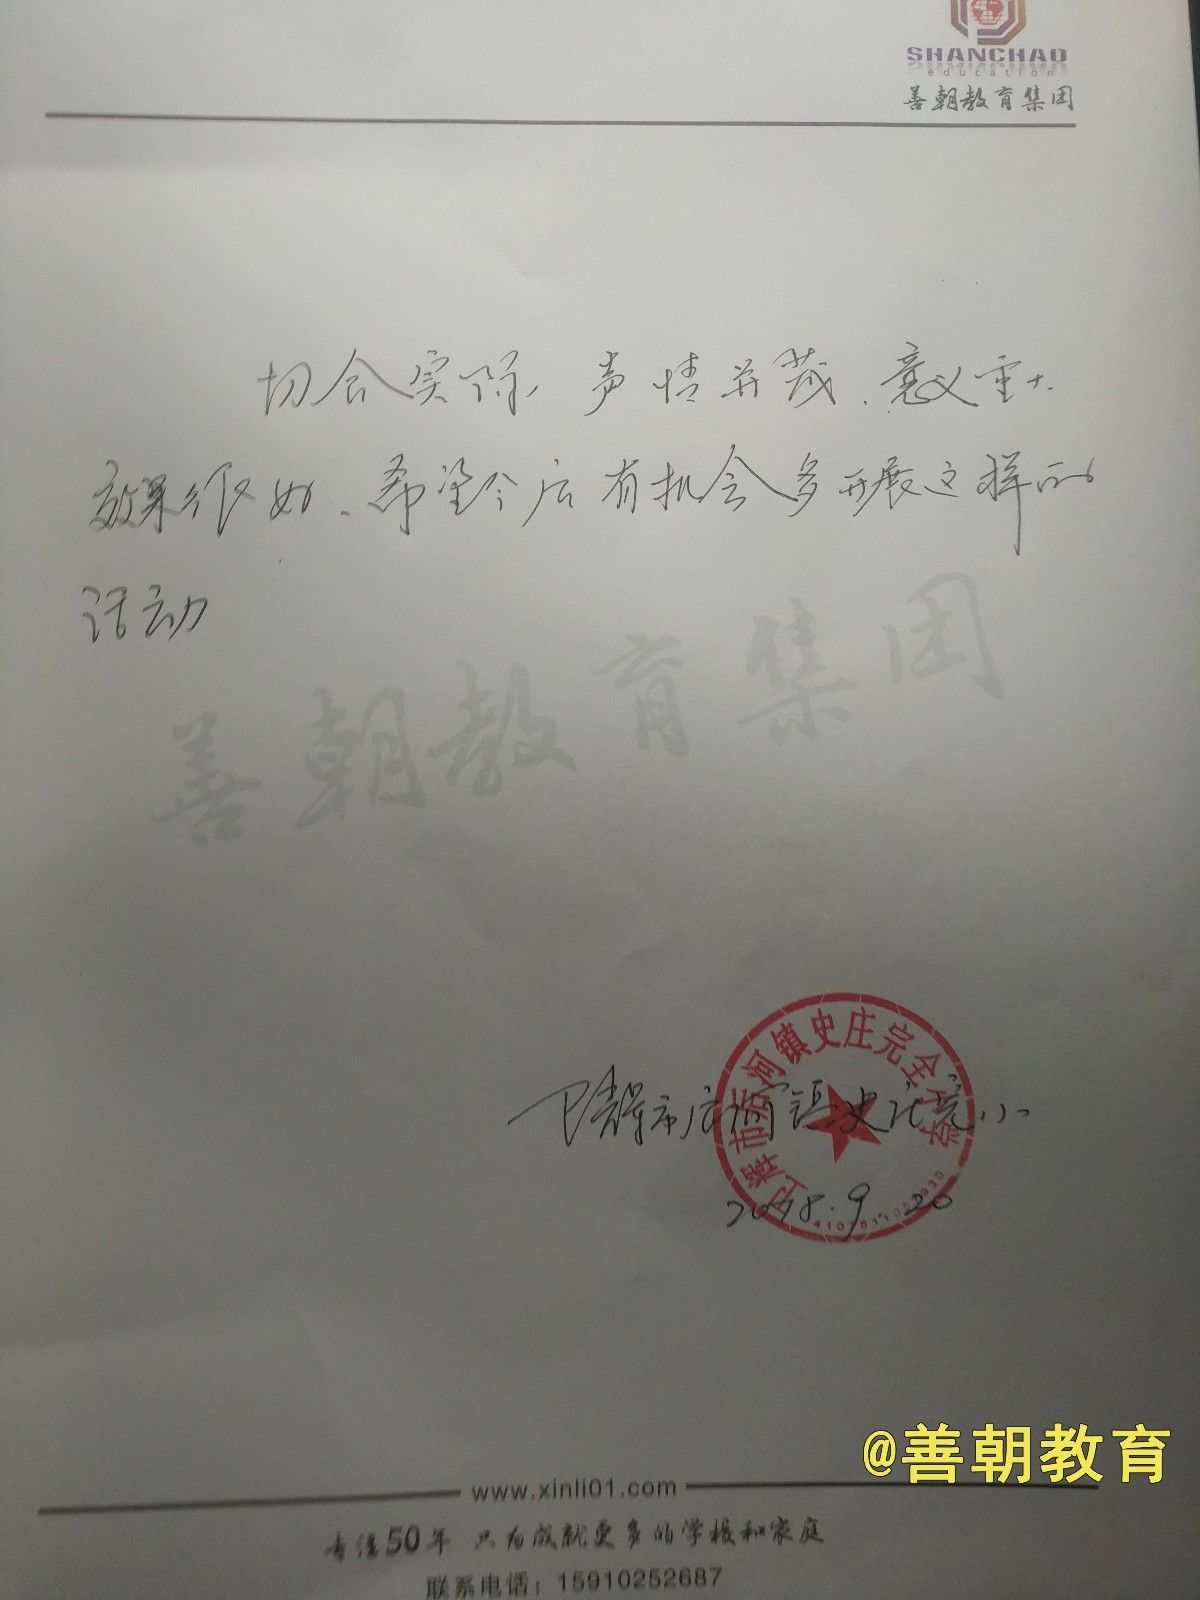 SHANCHAO
education
善朝教育集团
切合实际,声情并茂、意义重大.
效果很好、希望今后有机会多开展这样的
活动
善朝教育集团
卫辉市后河镇史庄完全小学
卫辉市后河镇史庄完小
2018.9.20
@善朝教育
www.xinli01.com
专注50年 只为成就更多的学校和家庭
联系电话：15910252687